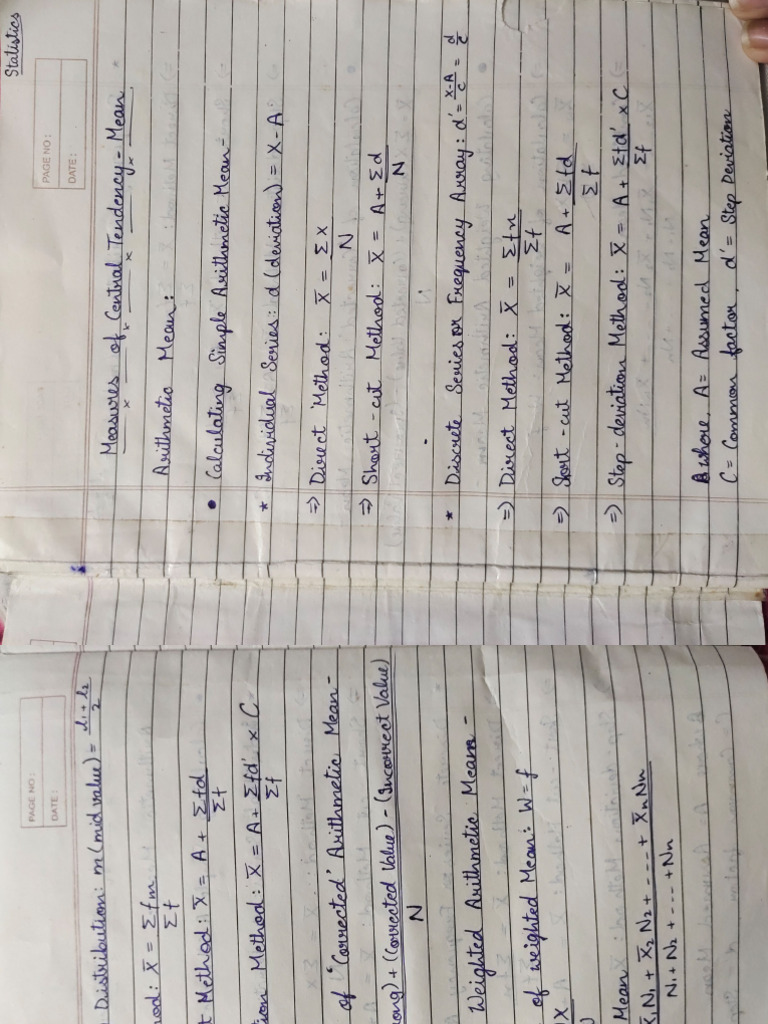 Statistics
PAGE NO:
DATE:
Measures of Central Tendency - Mean
Arithmetic Mean:
• Calculating Simple Arithmetic Mean-
* Individual Series: d (deviation) = X-A
⇒ Direct Method: X̅ = Σx / N
⇒ Short-cut Method: X̅ = A + Σd / N
* Discrete Series or Frequency Array: d' = x-A / c = d / c
⇒ Direct Method: X̅ = Σfx / Σf
⇒ Shot-cut Method: X̅ = A + Σfd / Σf
⇒ Step-deviation Method: X̅ = A + Σfd' / Σf × C
where, A = Assumed Mean
C = Common factor, d' = Step Deviation
PAGE NO:
DATE:
Distribution: m (mid value) = l₁ + l₂ / 2
hod: X̅ = Σfm / Σf
t Method: X̅ = A + Σfd / Σf
tion Method: X̅ = A + Σfd' / Σf × C
of "Corrected" Arithmetic Mean-
ong) + (Corrected Value) - (Incorrect Value) / N
Weighted Arithmetic Mean-
of weighted Mean: W = f
Mean
X̅₁N₁ + X̅₂N₂ + ---- + X̅ₙNₙ / N₁ + N₂ + ---- + Nₙ